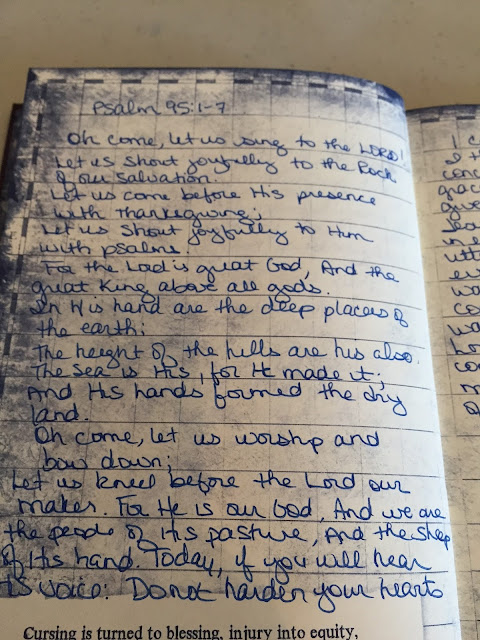 Psalm 95:1-7
Oh come, let us sing to the LORD!
Let us shout joyfully to the Rock
of our salvation.
Let us come before His presence
with thanksgiving;
Let us shout joyfully to Him
with psalms.
For the Lord is great God, And the
great King above all gods.
In His hand are the deep places of
the earth;
The height of the hills are his also.
The sea is His, for He made it;
And His hands formed the dry
land.
Oh come, let us worship and
bow down;
Let us kneel before the Lord our
maker. For He is our God, And we are
the people of His pasture, And the sheep
of His hand. Today, if you will hear
His voice: Do not harden your hearts
Cursing is turned to blessing, injury into equity,
I
I